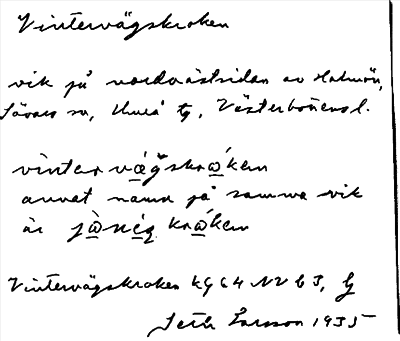 Vintervägskroken
vik på nordvästsidan av Holmön,
Sävars sn, Umeå tg, Västerbottens l.
vìnter vǽgskrǻken
annat namn på samma vik
är
Vintervägskroken kg 64 NV b 3, G
Seth Larsson 1935